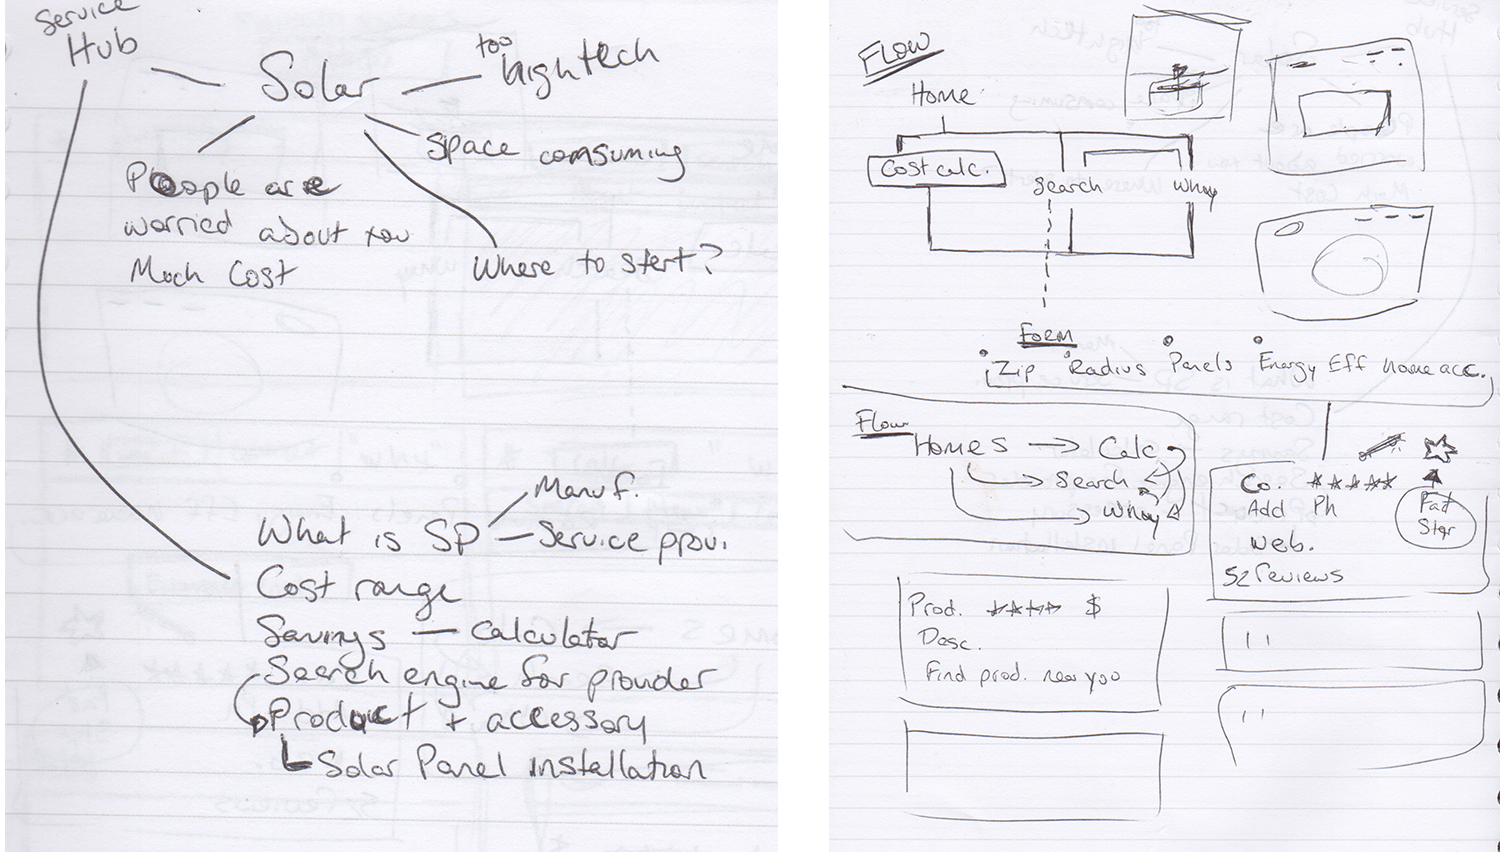 Service
Hub
Solar
too
hightech
Space consuming
People are
worried about too
Much Cost
Where to start?
What is SP
Manuf.
Service prov.
Cost range
Savings — calculator
Search engine for provider
Product + accessory
Solar Panel installation
FLOW
Home
Cost calc.
Search
Whay
Form
Zip
Radius
Panels
Energy Eff home acc.
Flow
Homes → Calc
Search
Whay
Co. *****
Add Ph
Web.
52 reviews
Fat
Star
Prod. **** $
Desc.
Find prod. near you
11
11